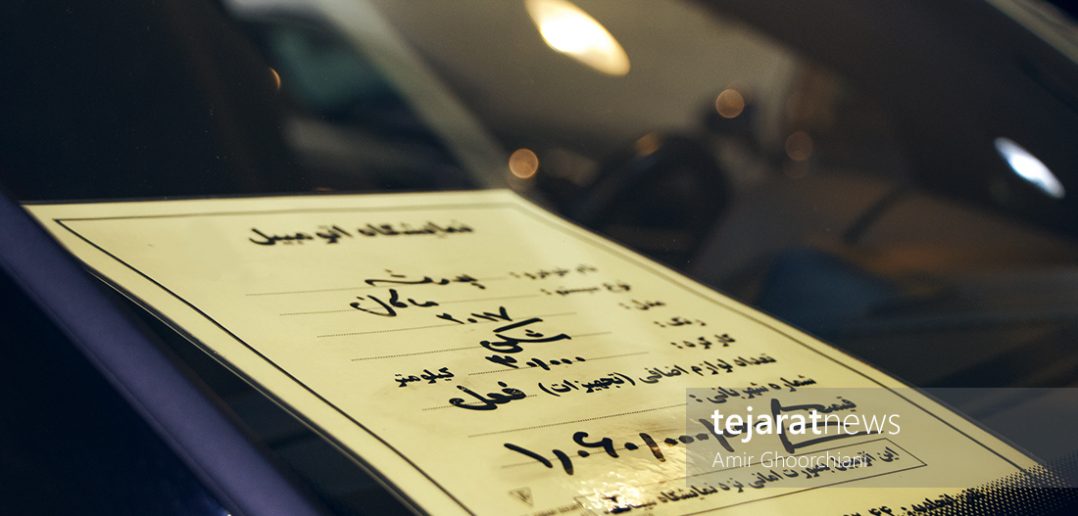 نمایشگاه اتومبیل
نام خودرو : پورشه
نوع سیستم : ماکان
مدل : ۲۰۱۷
رنگ : مشکی
کارکرد : ۳۰/۰۰۰ کیلومتر
تعداد لوازم اضافی (تجهیزات) فول
شماره شهربانی :
قیمت
این اتومبیل بصورت امانی نزد نمایشگاه
tejaratnews
Amir Ghoorchiani